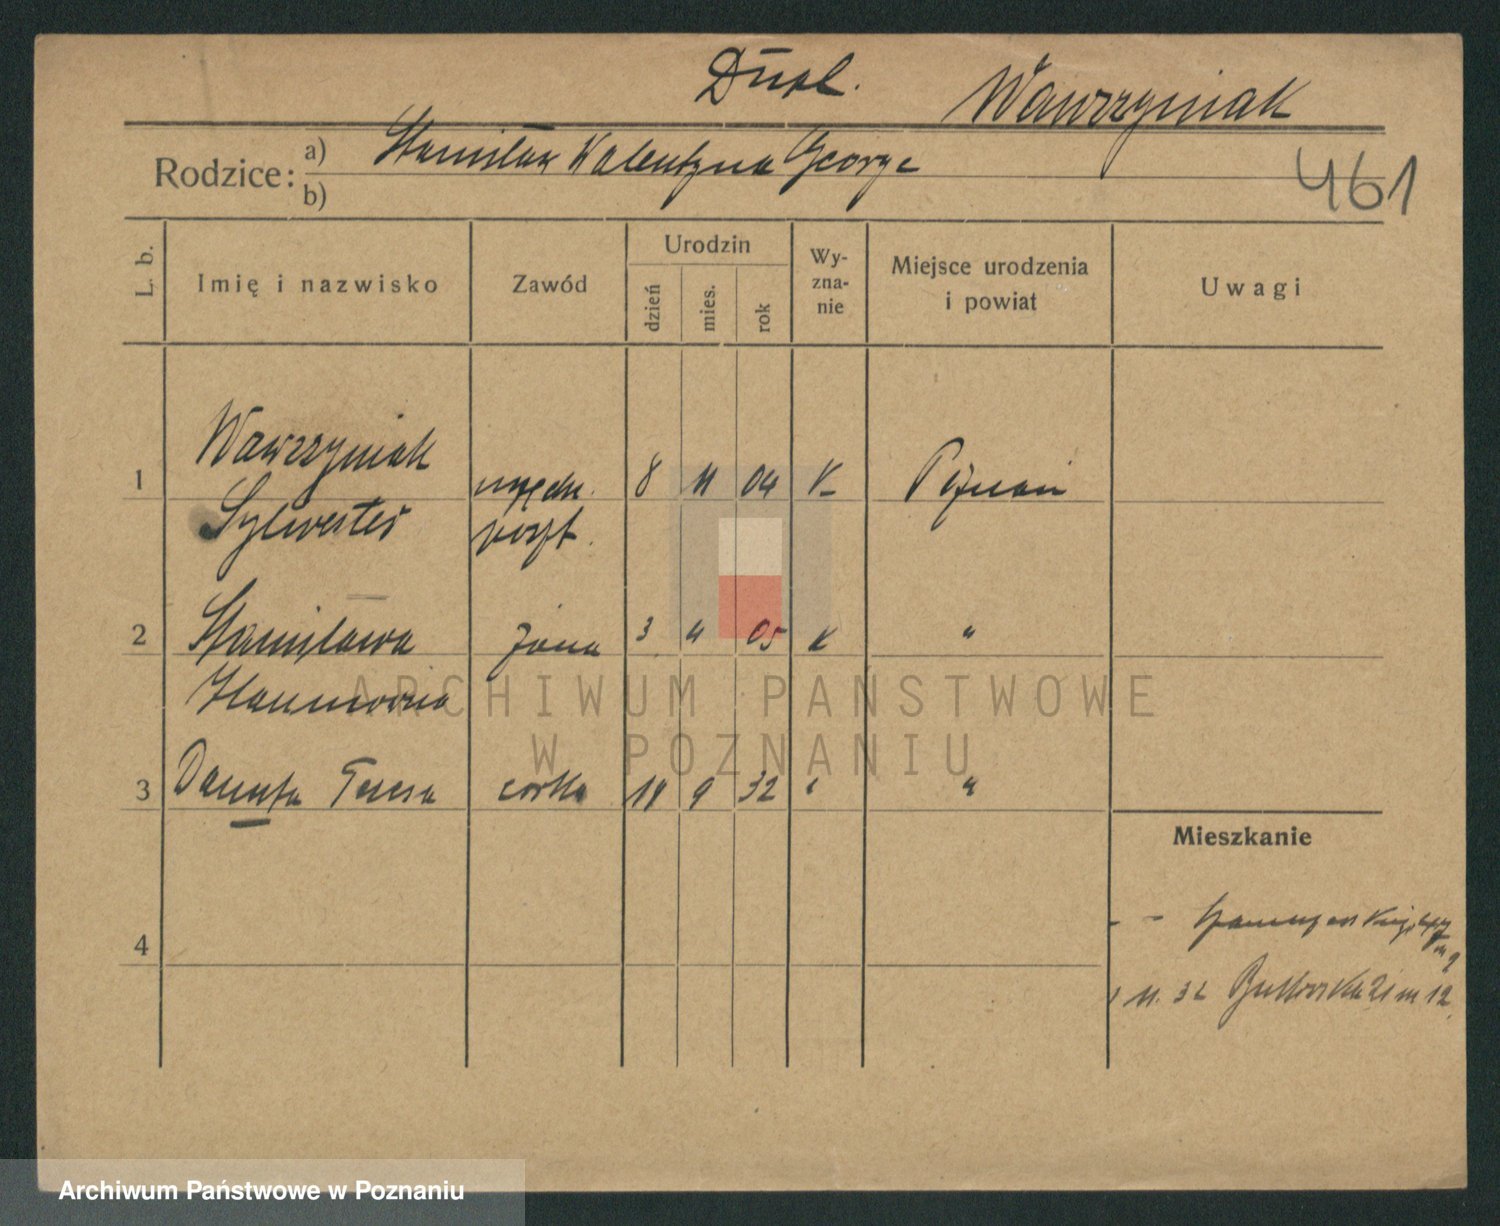 Dupl. Wawrzyniak
Rodzice: a) Stanisław Walentyna George
b)
461
L. b. Imię i nazwisko Zawód Urodzin dzień mies. rok Wyznanie Miejsce urodzenia i powiat Uwagi
Wawrzyniak
1 urzędn. 8 11 04 K Poznań
Sylwester poszt.
2 Stanisława żona 3 4 05 K "
ARCHIWUM PAŃSTWOWE
W POZNANIU
3 Danuta Teresa córka 18 9 32 " "
Mieszkanie
4
11. 32 21 m 12
Archiwum Państwowe w Poznaniu